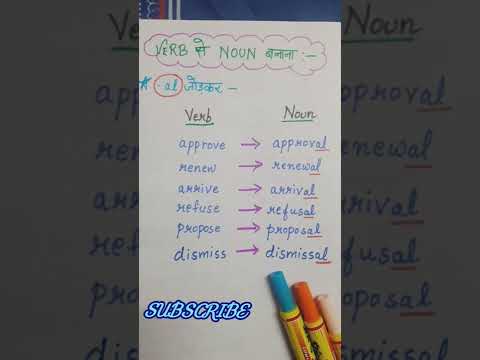 VERB से NOUN बनाना :-
* -al जोड़कर -
Verb Noun
approve → approval
renew → renewal
arrive → arrival
refuse → refusal
propose → proposal
dismiss → dismissal
SUBSCRIBE